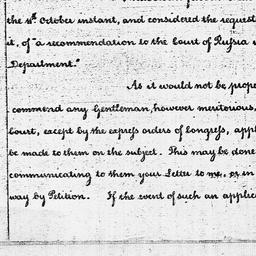 the 4th October instant, and considered the request
it, of "a recommendation to the Court of Russia
Department."
As it would not be prope
commend any Gentleman, however meritorious,
Court, except by the express orders of Congress, appl
be made to them on the subject. This may be done
communicating to them your Letter to me, or in
way by Petition. If the event of such an applica